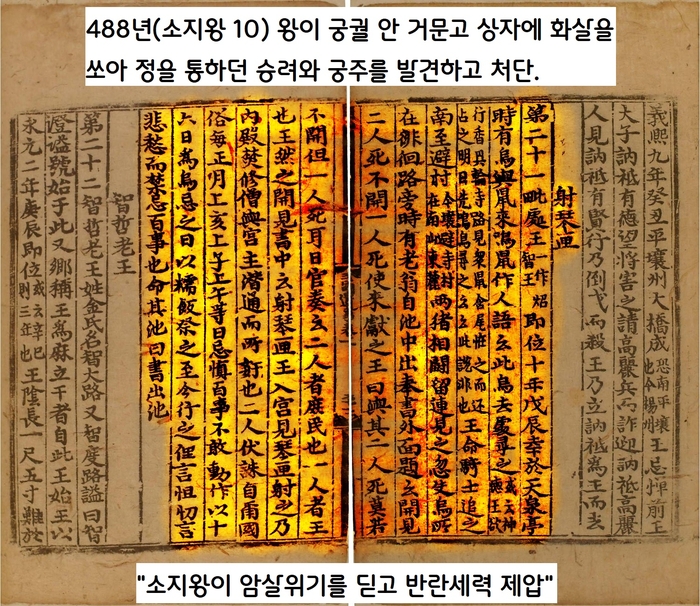 488년(소지왕 10) 왕이 궁궐 안 거문고 상자에 화살을
쏘아 정을 통하던 승려와 궁주를 발견하고 처단.
義熙九年癸丑平壤州大橋成恐南平壤也今楊州王忌憚前王
大子訥祗有德望將害之請高麗兵而詐迎訥祗高麗
人見訥祗有賢行乃倒戈而殺王乃立訥祗爲王而去
射琴匣
第二十一毗處王一作炤智王即位十年戊辰幸於天泉亭
時有烏與鼠來鳴鼠作人語云此烏去處尋之或云神德王欲
行香興輪寺路見衆鼠含尾怪之而還占之明日先鳴烏尋之云云此說非也王命騎士追之
南至避村今壤避寺村在南山東麓兩猪相鬪留連見之忽失烏所
在徘徊路旁時有老翁自池中出奉書外面題云開見
二人死不開一人死使來獻之王曰與其二人死莫若
不開但一人死耳日官奏云二人者庶民也一人者王
也王然之開見書中云射琴匣王入宮見琴匣射之乃
內殿焚修僧與宮主潛通而所奸也二人伏誅自爾國
俗每正月上亥上子上午等日忌愼百事不敢動作以十
六日爲烏忌之日以糯飯祭之至今行之俚言怛忉言
悲愁而禁忌百事也命其池曰書出池
智哲老王
第二十二智哲老王姓金氏名智大路又智度路諡曰智
澄諡號始于此又鄕稱王爲麻立干者自此王始王以
永元二年庚辰即位或云辛巳則三年也王陰長一尺五寸難於
"소지왕이 암살위기를 딛고 반란세력 제압"